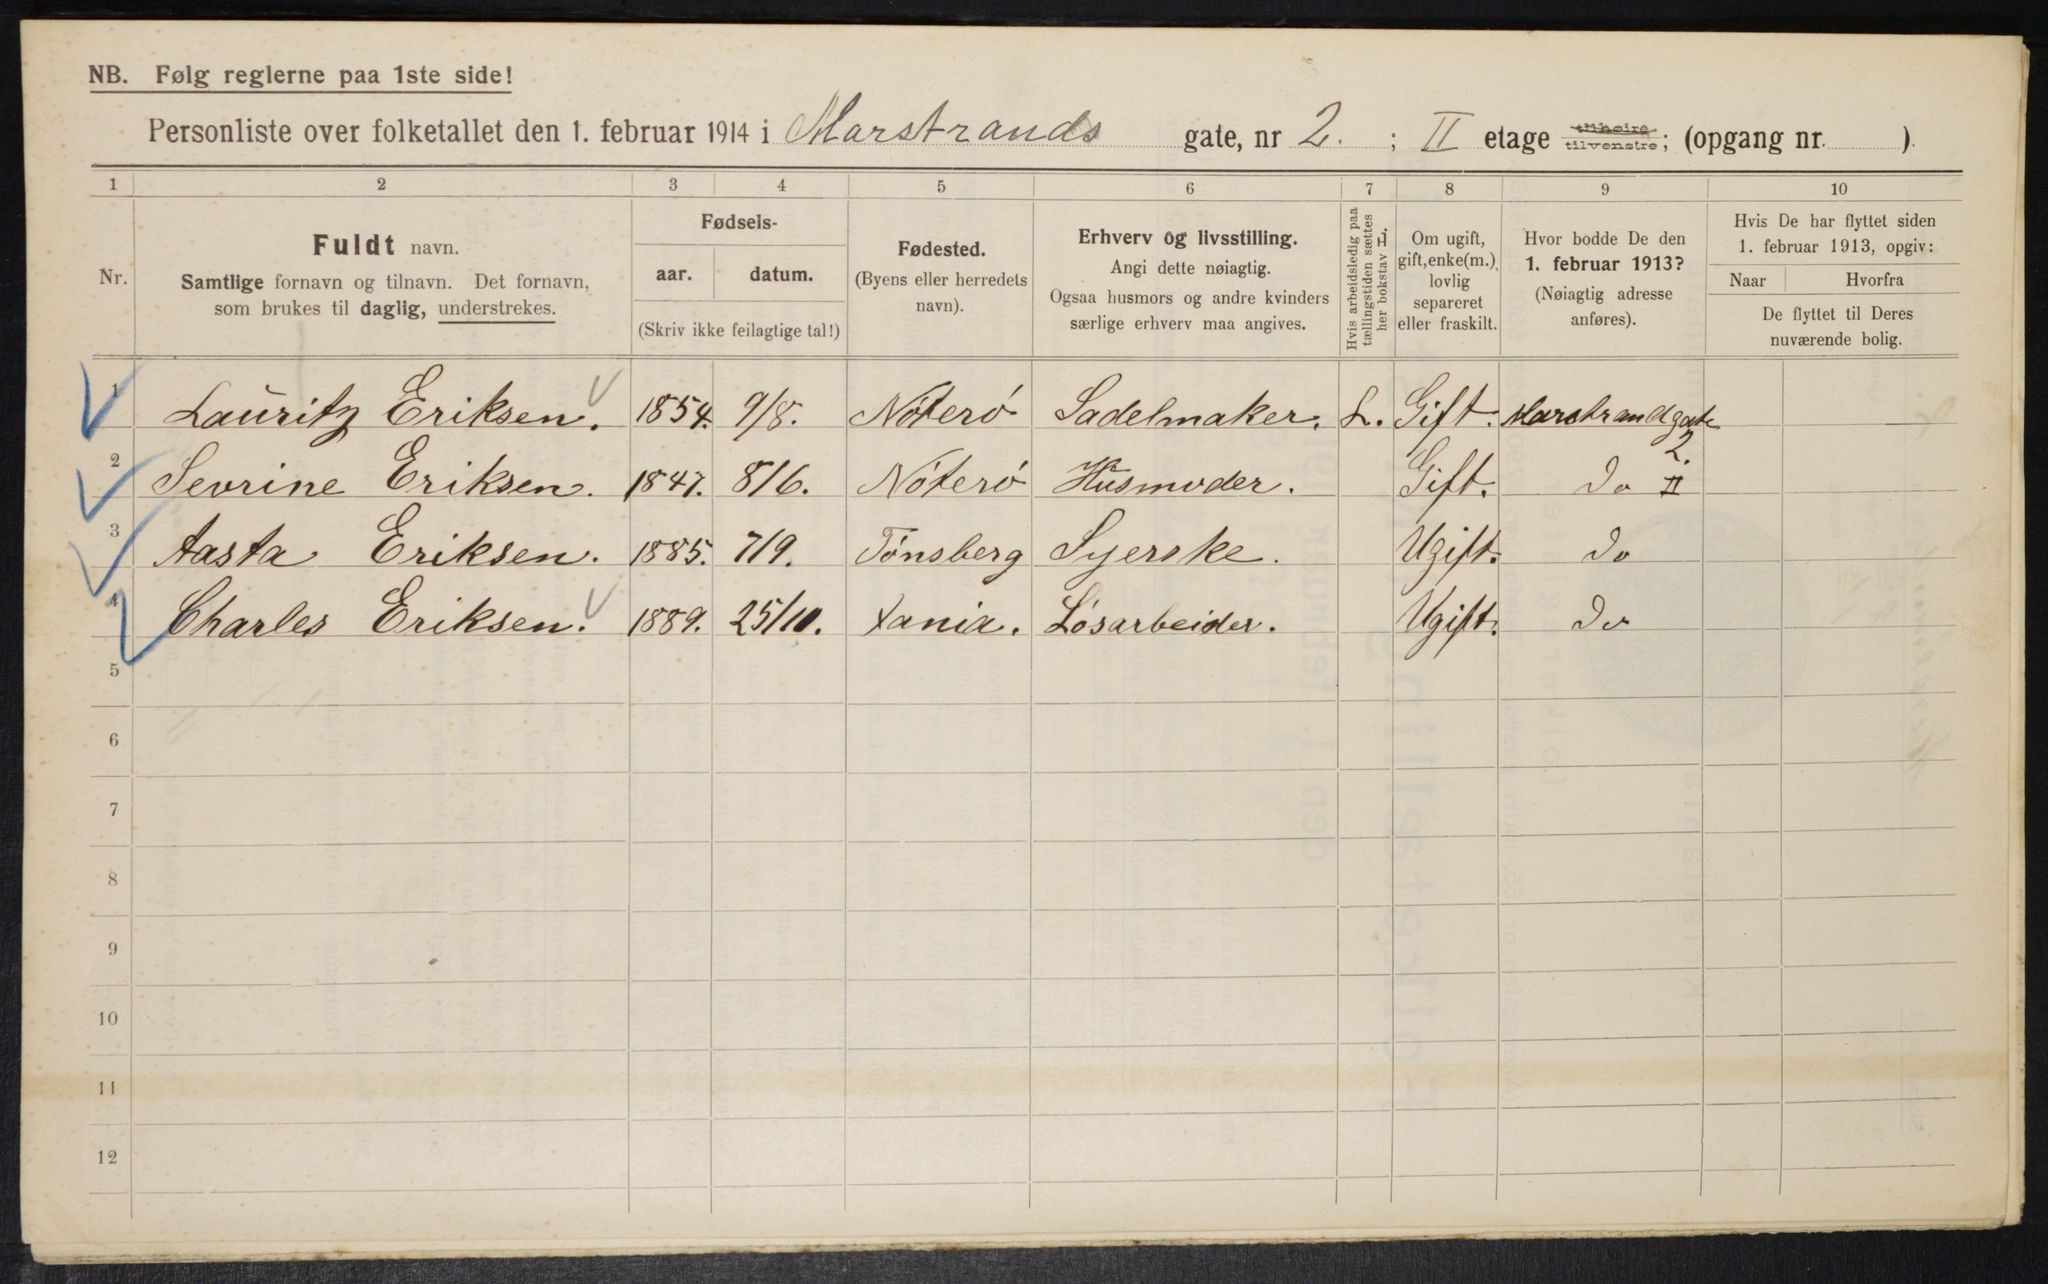 NB. Følg reglerne paa 1ste side!
Personliste over folketallet den 1. februar 1914 i Marstrands gate, nr 2. ; II etage tilhøire tilvenstre; (opgang nr. ).
1 2 3 4 5 6 7 8 9 10
Nr.
Fuldt navn.
Samtlige fornavn og tilnavn. Det fornavn,
som brukes til daglig, understrekes.
Fødsels-
aar. datum.
(Skriv ikke feilagtige tal!)
Fødested.
(Byens eller herredets
navn).
Erhverv og livsstilling.
Angi dette nøiagtig.
Ogsaa husmors og andre kvinders
særlige erhverv maa angives.
Hvis arbeidsledig paa
tællingstiden sættes
her bokstav L.
Om ugift,
gift, enke(m.),
lovlig
separeret
eller fraskilt.
Hvor bodde De den
1. februar 1913?
(Nøiagtig adresse
anføres).
Hvis De har flyttet siden
1. februar 1913, opgiv:
Naar Hvorfra
De flyttet til Deres
nuværende bolig.
1 Lauritz Eriksen. 1854. 9/8. Nøterø Sadelmaker. L. Gift. Marstrandgate 2.
2 Sevrine Eriksen. 1847. 8/6. Nøterø Husmoder. Gift. do II
3 Aasta Eriksen. 1885. 7/9. Tønsberg Syerske. Ugift. do
4 Charles Eriksen. 1889. 25/10. Xania. Løsarbeider. Ugift. do
5
6
7
8
9
10
11
12